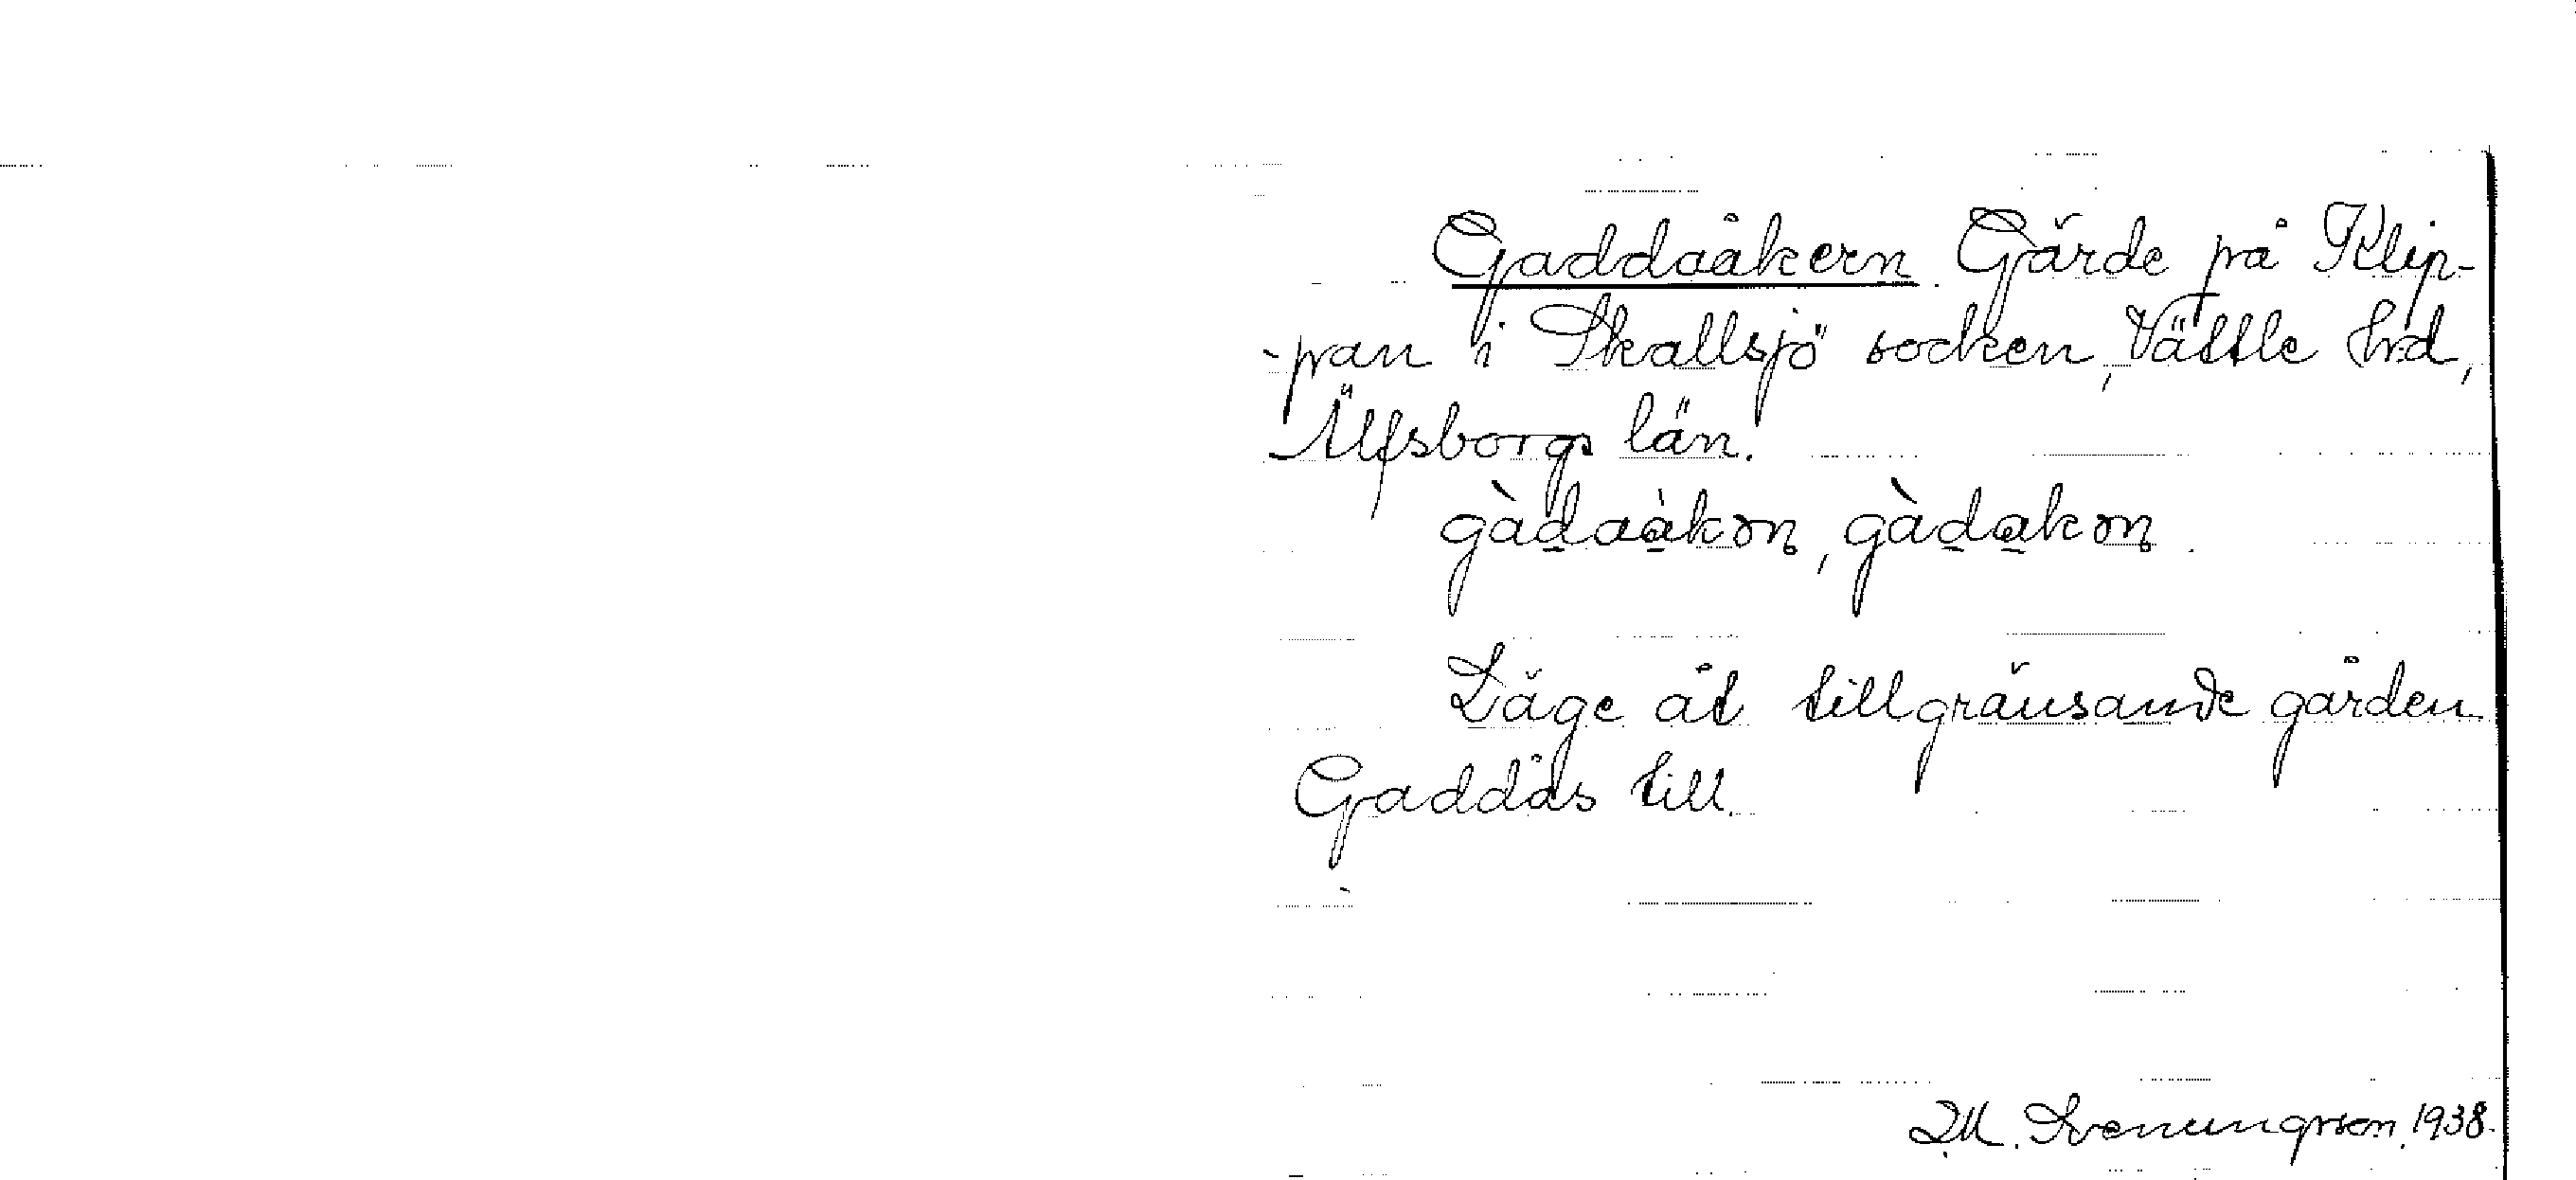 Gaddaåkern. Gärde på Klip-
-pan i Skallsjö socken, Vättle hrd,
Älfsborgs län.
gàdaàkon, gàdakon.
Läge åt tillgränsande gården
Gaddås till.
I.M. Svenungsson. 1938.